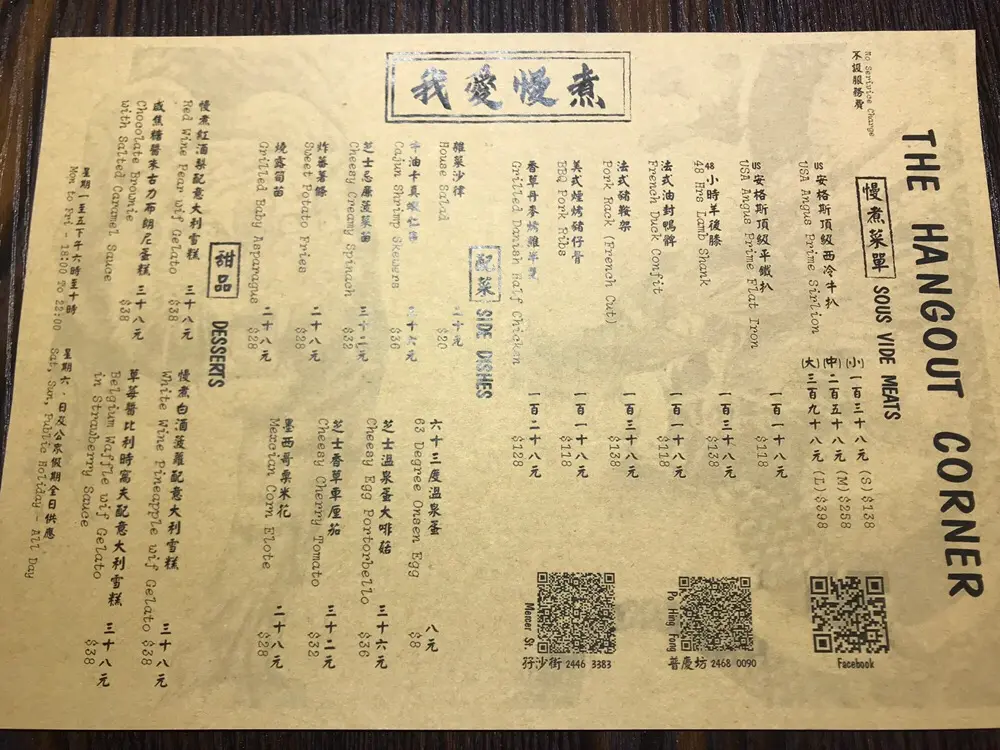 THE HANGOUT CORNER
No Serivice Change
不設服務費
慢煮菜單 SOUS VIDE MEATS
我愛慢煮
US安格斯頂級西冷牛扒
USA Angus Prime Sirlion
(小)一百三十八元 (S) $138
(中)二百五十八元 (M) $258
(大)三百九十八元 (L) $398
US安格斯頂級平鐵扒 一百一十八元
USA Angus Prime Flat Iron $118
48小時羊後膝 一百三十八元
48 Hrs Lamb Shank $138
法式油封鴨髀 一百一十八元
French Duck Confit $118
法式豬鞍架 一百三十八元
Pork Rack (French Cut) $138
美式煙烤豬仔骨 一百一十八元
BBQ Pork Ribs $118
香草丹麥烤雞半隻 一百二十八元
Grilled Danish Half Chicken $128
Facebook
Po Hing Fong
普慶坊 2468 0090
Mercer St.
孖沙街 2446 3383
配菜 SIDE DISHES
雜菜沙律 二十元
House Salad $20
牛油卡真蝦串燒 三十六元
Cajun Shrimp Skewers $36
芝士忌廉菠菜苗 三十二元
Cheesy Creamy Spinach $32
炸蕃薯條 二十八元
Sweet Potato Fries $28
燒露筍苗 二十八元
Grilled Baby Asparagus $28
六十三度溫泉蛋 八元
63 Degree Onsen Egg $8
芝士溫泉蛋大啡菇 三十六元
Cheesy Egg Portorbello $36
芝士香草車厘茄 三十二元
Cheesy Cherry Tomato $32
墨西哥粟米花 二十八元
Mexcian Corn Elote $28
甜品 DESSERTS
慢煮紅酒梨配意大利雪糕 三十八元
Red Wine Pear wif Gelato $38
咸焦糖醬朱古力布朗尼蛋糕 三十八元
Chocolate Brownie $38
with Salted Caramel Sauce
慢煮白酒菠蘿配意大利雪糕 三十八元
White Wine Pineapple wif Gelato $38
草莓醬比利時窩夫配意大利雪糕 三十八元
Belgium Waffle wif Gelato $38
in Strawberry Sauce
星期一至五下午六時至十時
Mon to Fri - 18:00 To 22:00
星期六，日及公眾假期全日供應
Sat, Sun, Public Holiday - All Day